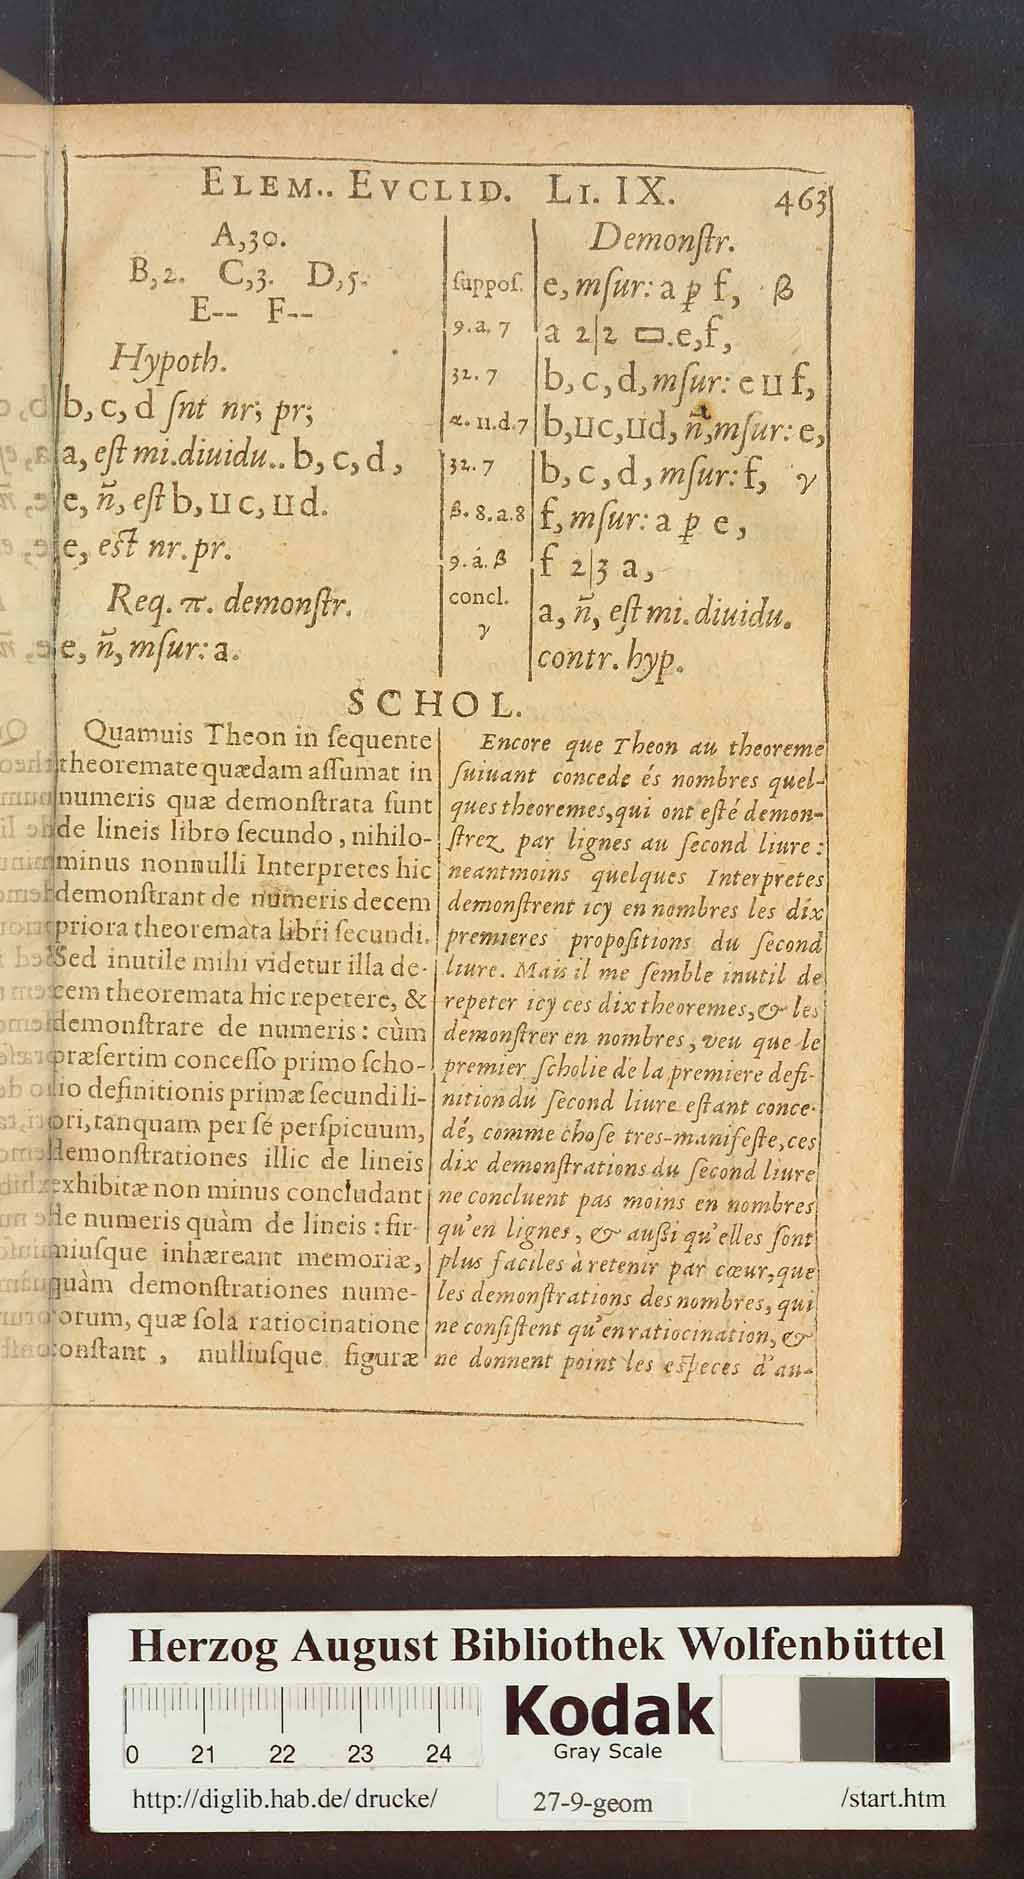 ELEM.. EVCLID. LI. IX. 463
A,30.
B,2. C,3. D,5.
E-- F--
Hypoth.
b, c, d ſnt nr; pr;
a, eſt mi.diuidu.. b, c, d,
e, ñ, eſt b, ⊔ c, ⊔ d.
e, eſt nr. pr.
Req. π. demonſtr.
e, ñ, mſur: a.
Demonſtr.
ſuppoſ. e, mſur: a p̱ f, β
9.a.7 a 2|2 ▭.e,f,
32.7 b, c, d, mſur: e ⊔ f,
α.11.d.7 b,⊔c,⊔d, ñ,mſur: e,
32.7 b, c, d, mſur: f, γ
β.8.a.8 f, mſur: a p̱ e,
9.á.β f 2|3 a,
concl. a, ñ, eſt mi. diuidu.
γ contr. hyp.
SCHOL.
Quamuis Theon in ſequente
theoremate quædam aſſumat in
numeris quæ demonſtrata ſunt
de lineis libro ſecundo, nihilo-
minus nonnulli Interpretes hic
demonſtrant de numeris decem
priora theoremata libri ſecundi.
Sed inutile mihi videtur illa de-
cem theoremata hic repetere, &
demonſtrare de numeris: cùm
præſertim conceſſo primo ſcho-
lio definitionis primæ ſecundi li-
bri, tanquam per ſe perſpicuum,
demonſtrationes illic de lineis
exhibitæ non minus concludant
de numeris quàm de lineis: fir-
miuſque inhæreant memoriæ,
quàm demonſtrationes nume-
rorum, quæ ſola ratiocinatione
conſtant, nulliuſque figuræ
Encore que Theon au theoreme
ſuiuant concede és nombres quel-
ques theoremes, qui ont eſté demon-
ſtrez par lignes au ſecond liure:
neantmoins quelques Interpretes
demonſtrent icy en nombres les dix
premieres propoſitions du ſecond
liure. Mais il me ſemble inutil de
repeter icy ces dix theoremes, & les
demonſtrer en nombres, veu que le
premier ſcholie de la premiere defi-
nition du ſecond liure eſtant conce-
dé, comme choſe tres-manifeſte, ces
dix demonſtrations du ſecond liure
ne concluent pas moins en nombres
qu'en lignes, & auſſi qu'elles ſont
plus faciles à retenir par cœur, que
les demonſtrations des nombres, qui
ne conſiſtent qu'en ratiocination, &
ne donnent point les eſpeces d'au-
Herzog August Bibliothek Wolfenbüttel
0 21 22 23 24
Kodak
Gray Scale
http://diglib.hab.de/ drucke/ 27-9-geom /start.htm